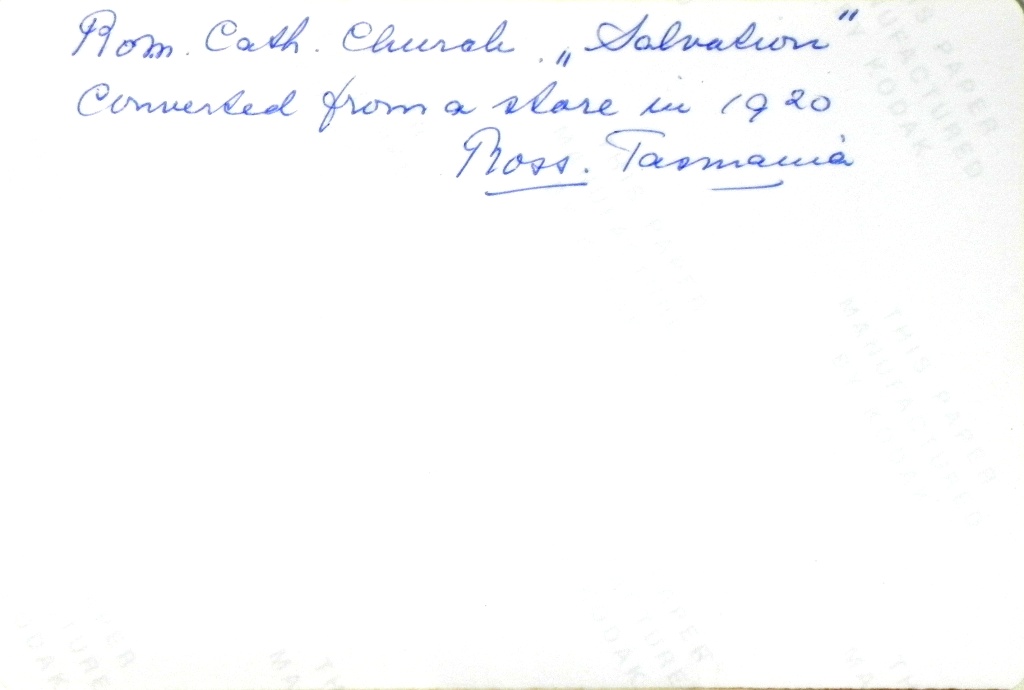 Rom. Cath. Church. „Salvation"
Converted from a store in 1920
Ross. Tasmania
THIS PAPER
MANUFACTURED
BY KODAK
THIS PAPER
MANUFACTURED